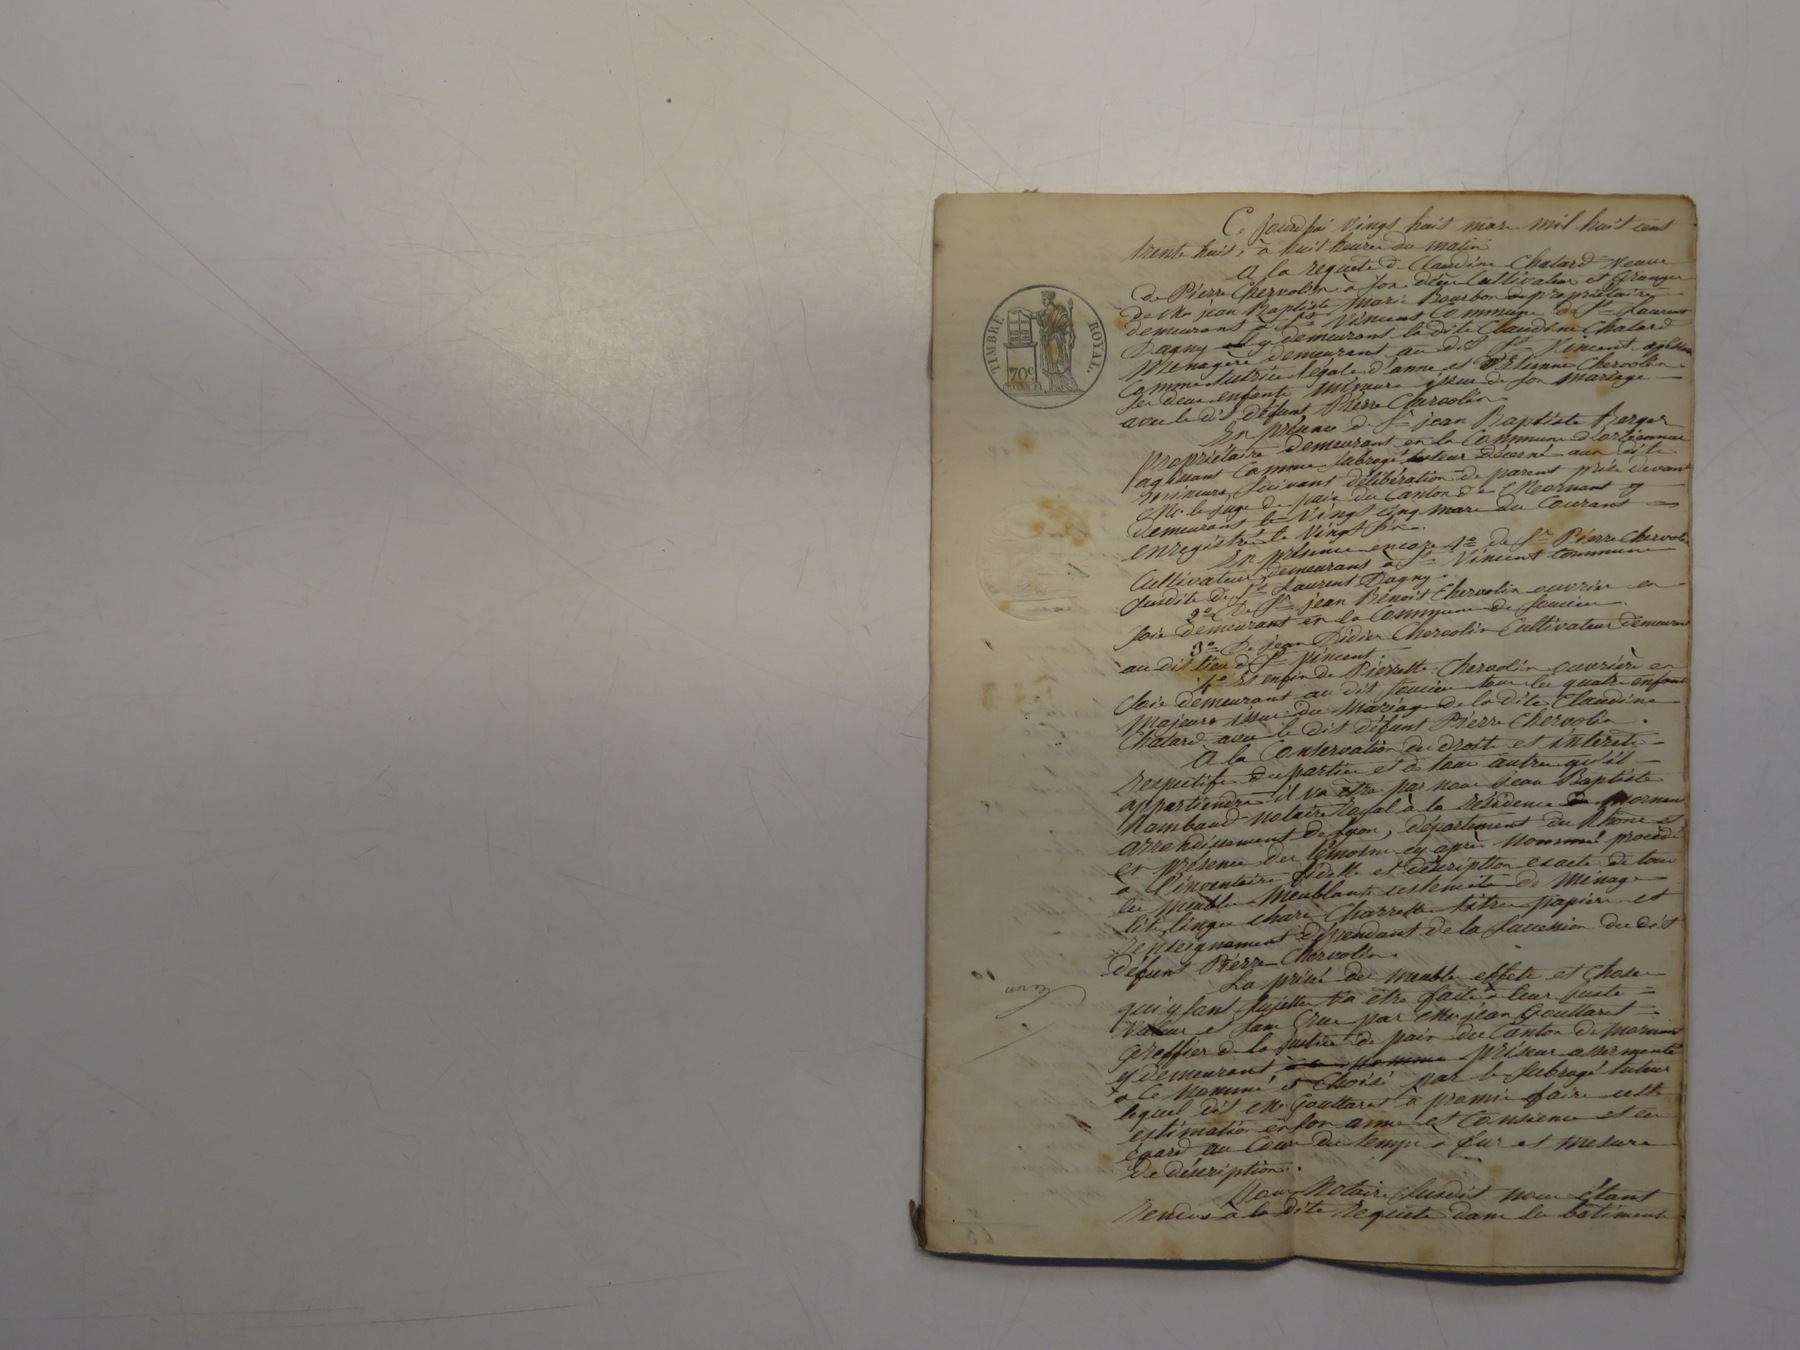 TIMBRE ROYAL.
70c
Ce jourdhui vingt huit mars mil huit cent
trente huit, à huit heures du matin
A la requête de Claudine Chatard veuve
de Pierre Chervolin à son décès Cultivateur et Granger
de Mr jean Baptiste Marie Bourbon propriétaire
demeurant à St Vincent Commune de St Laurent
Dagny y demeurant la dite Claudine Chatard
Ménagère demeurant au dit St Vincent agissant
Comme tutrice légale d'anne et d'Etienne Chervolin
ses deux enfants Mineurs issus de son Mariage
avec le dit défunt Pierre Chervolin
En présence de Sr jean Baptiste Berger
propriétaire demeurant en la Commune d'orliennas
agissant Comme subrogé tuteur décerné aux dits
mineurs, suivant délibération de parent prise devant
Mr le juge de paix du Canton de Mornant y
demeurant le Vingt cinq mars du Courant
enregistré le Vingt six.
En présence encore 1o de Sr Pierre Chervolin
Cultivateur demeurant à St Vincent Commune
susdite de St Laurent Dagny.
2o De Sr jean Benoit Chervolin ouvrier en
soie demeurant en la Commune de Soucieu.
3o De jean Didier Chervolin Cultivateur demeurant
au dit lieu de St Vincent.
4o Et enfin de Pierrette Chervolin ouvrière en
soie demeurant au dit Soucieu tous les quatre enfants
Majeurs issus du Mariage de la dite Claudine
Chatard avec le dit défunt Pierre Chervolin.
A la Conservation des droits et intérêts
respectifs des parties et de tous autres qu'il
appartiendra il va être par nous jean Baptiste
Rambaud notaire Royal à la résidence de Mornant
arrondissement de Lyon, département du Rhône et
en présence des témoins cy après nommés procédé
à l'inventaire fidelle et description exacte de tous
les meubles Meublants ustensiles de Ménage
lits, linges chars Charrettes titres papiers et
renseignements dépendants de la succession du dit
défunt Pierre Chervolin.
La prisée des meubles effets et choses
qui y sont sujettes va être faite à leur juste
Valeur et sans Crue par Mr jean Gouttaret
Greffier de la justice de paix du Canton de Mornant
y demeurant priseur assermenté
à Ce Nommé et Choisi par le subrogé tuteur
lequel dit Mr Gouttaret a promis faire cette
estimation en son ame et Consience et eu
égard au Cours du temps à fur et mesure
de description.
Nous Notaire susdit nous étant
rendus à la dite requête dans les bâtiments